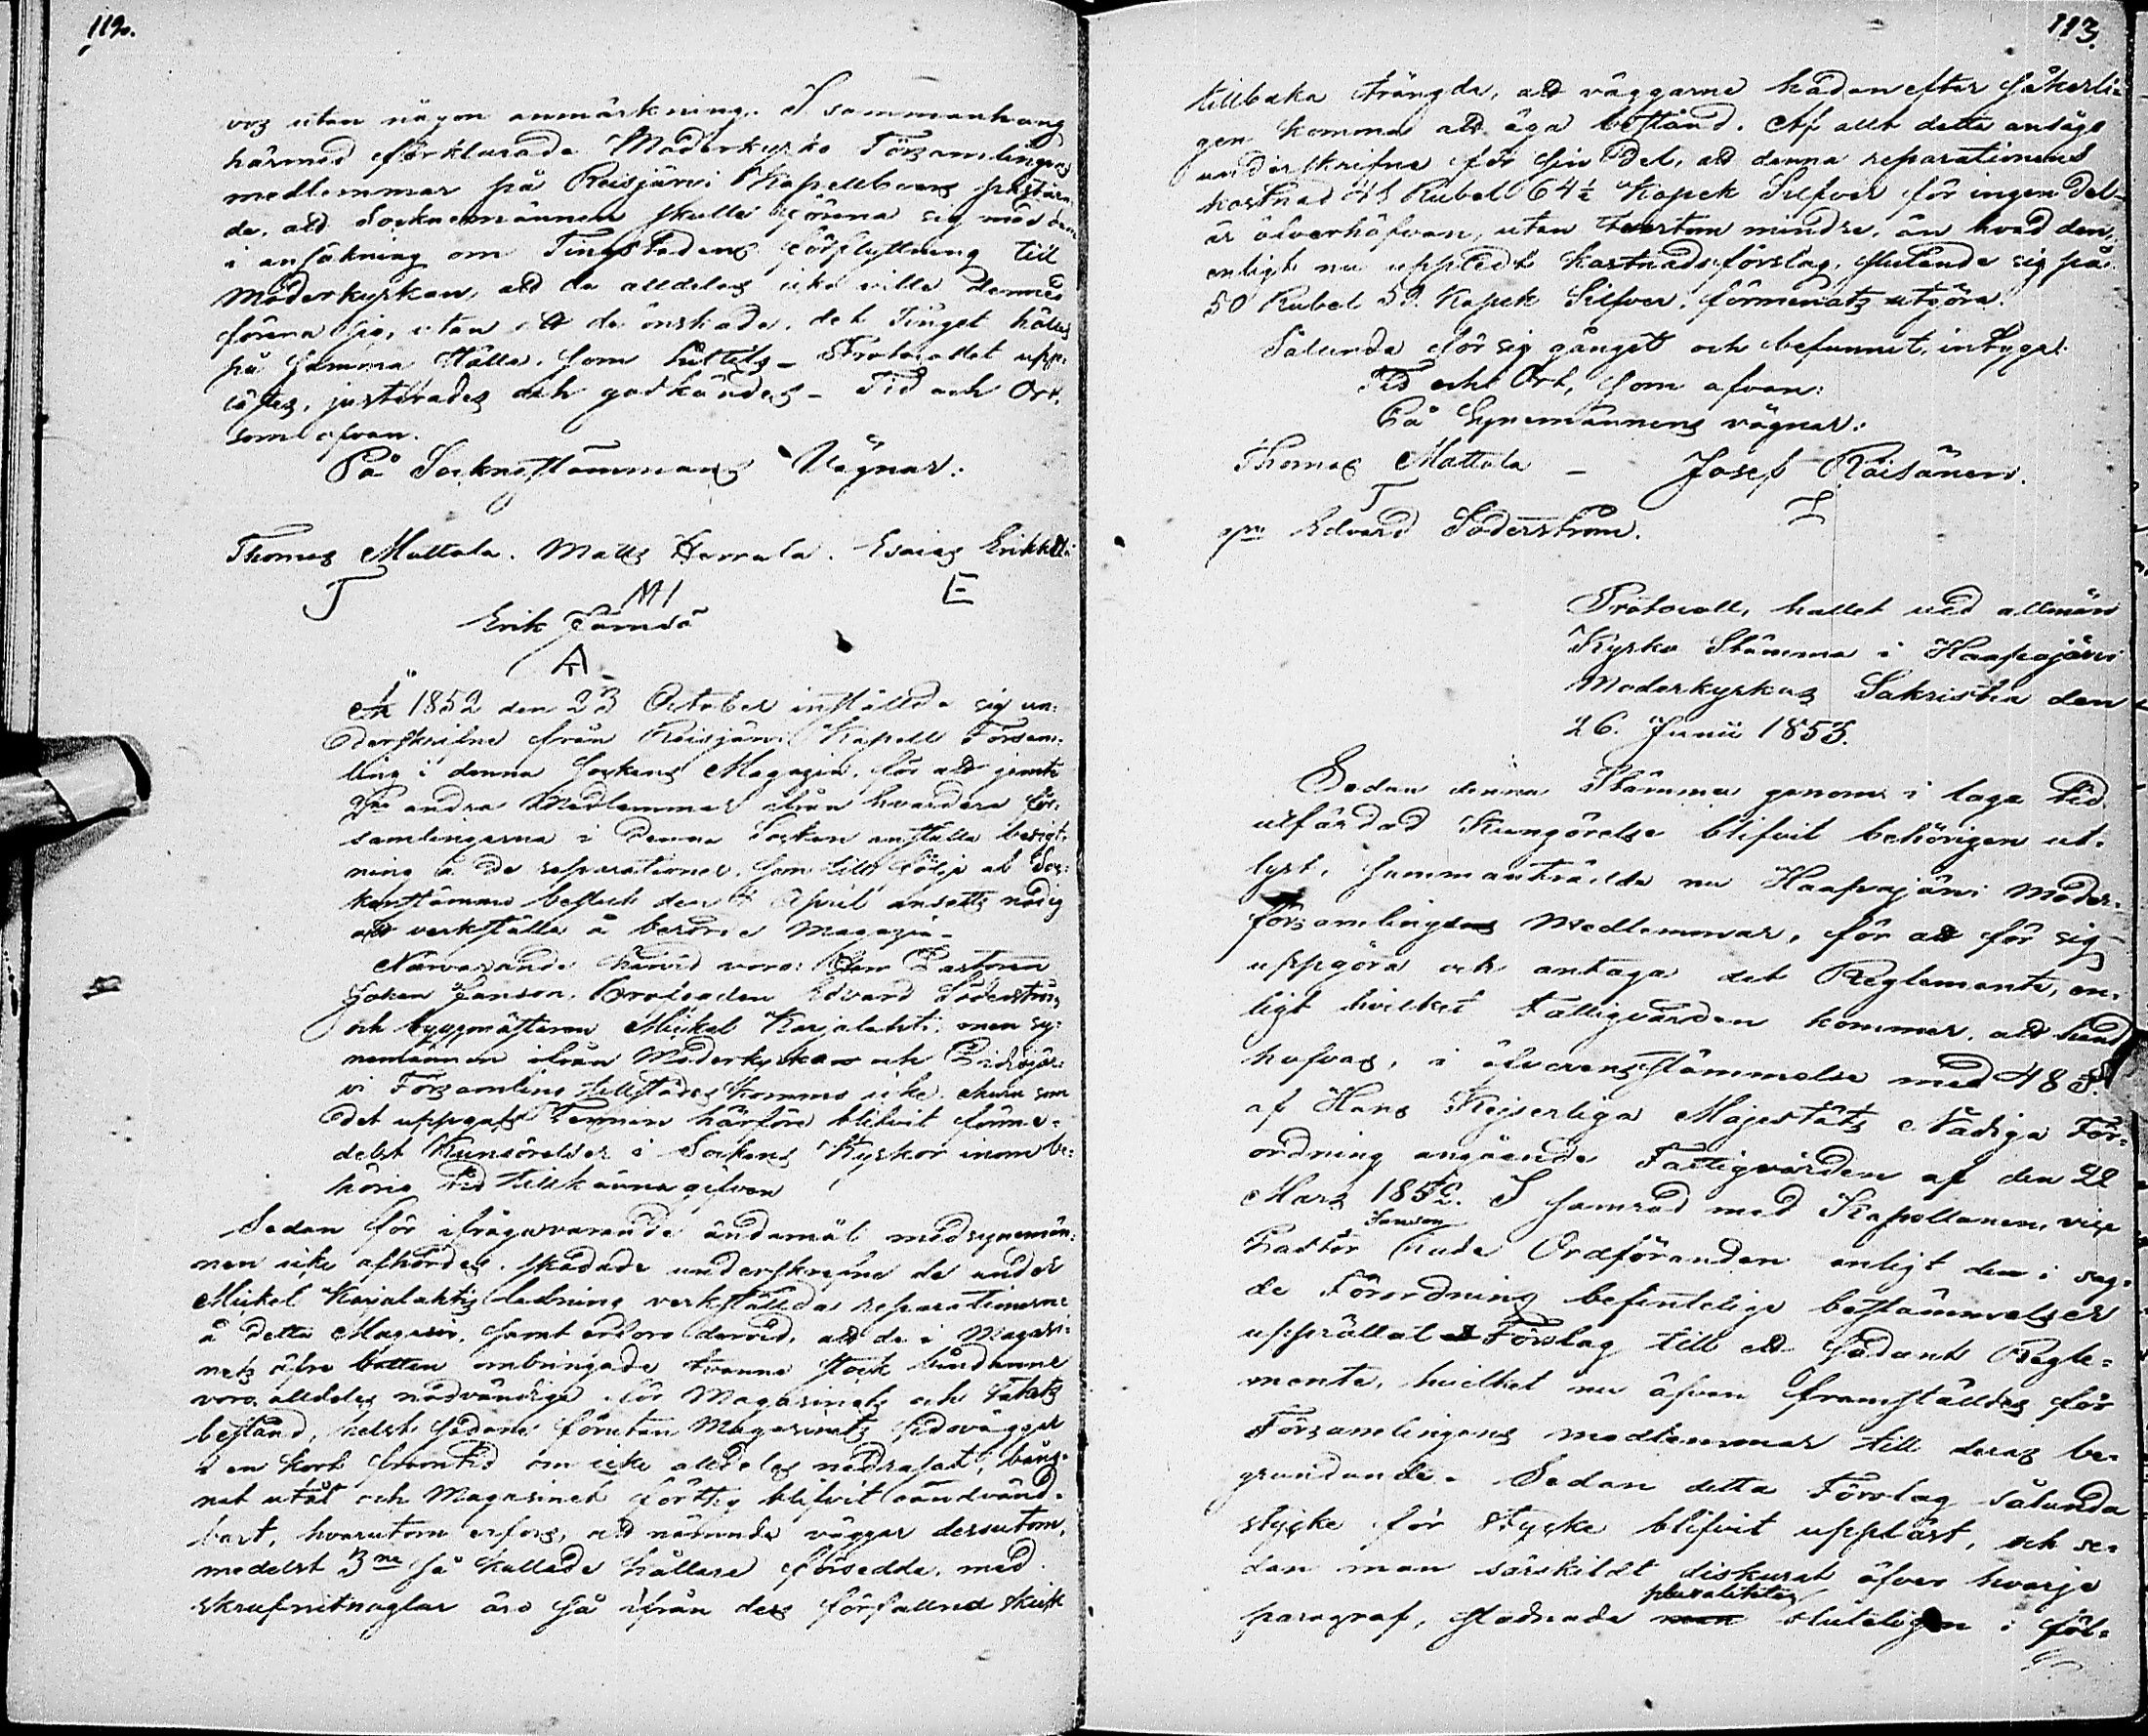 112.
ves utan någon anmärkning. I sammanhang
härmed förklarade Moderkyrko Församlingens
medlemmar på Reisjärvi Kapellboers påstående,
de, att Socknemännen skulle förena sig med dem
i ansökning om Tingsstadens förflyttning till
Moderkyrkan, att de alldeles icke ville dermed
förena sig, utan att de önskade, det Tinget hålles
på samma ställe, som hittils – Protocollet upp-
lästes, justerades och godkändes – Tid och Ort.
som ofvan.
På Sockneståmmans Vägnar:
Thomas Mattola. Matts Hemula. Esaias Erikkilä
T M E
Erik Jämsä
A
År 1852 den 23 October inställde sig un-
derskrifne från Reisjärvi Kapell Försam-
ling i denna Sockens Magazin, för att jemte
andra Medlemmar från hvardera för-
samlingarna i denna Socken anställa besigt-
ning å de reparationer, som till följe af Soc-
kenstämmo beslut den April ansetts nödig
att verkställa å berörde Magazin –
Närvarande härvid voro: Herr Pastoren
Johan Janson, Brofogden Edvard Söderström
och byggmästaren Mickel Karjalahti, men sy-
nemännen ifrån Moderkyrkan och Pidisjär-
vi Församling tillstädes kommo icke, ehuru som
det uppgafs Termin härföre blifvit förme-
delst Kungörelser i Sockens Kyrkor inom be-
hörig tid tillkänna gifven
Sedan för ifrågavarande ändamål medsynemän-
nen icke afhördes, skådade underskrefne de under
Mickel Karjalahtis ledning verkställda reparationerne
å detta Magasin, samt erforo dervid, att de i Magasi-
nets öfre botten ombringade tvenne stock bindarne
voro alldeles nödvändiga för Magasinets och takets
bestånd, helst sådane förutan Magasinets sidoväggar
i en kort framtid om icke alldeles nedrasat, bång-
nat utåt och Magasinet förthy blifvit oandvänd-
bart, hvarutom erfors, att nämnde väggar dersutom,
medelst 3ne så kallade hållare försedde, med
skrufnitnaglar äro så ifrån des förfallna skick
113.
tillbaka trängde, att väggarne hädanefter säkerli-
gen komma att äga bestånd. Af allt detta ansågo
underskrifne för sin del, att denna reparationens
kostnad 43 Rubel 64½ Kopek Silfver för ingen del
är öfverhöfvan, utan tvertom mindre, än hvad den,
enligt nu uppläst kostnadsförslag, slutande sig på
50 Rubel 52. Kopek Silfver, förmenats utgöra.
Sålunda för sig gånget och befunnit, intygar.
Tid och Ort, som ofvan:
På Synemännens vägnar:
Thomas Mattola – Josef Räisänen.
T I
Edvard Söderström.
Protocoll, hållet vid allmän
Kyrko Stämma i Haapajärvi
Moderkyrkas Sakristia den
26. Junii 1853.
Sedan denna Stämma genom i laga tid
utfärdad Kungörelse blifvit behörigen ut-
lyst, sammanträdde nu Haapajärvi Moder-
församlingens Medlemmar, för att för sig
uppgöra och antaga det Reglemente, en-
ligt hvilket Fattigvården kommer, att hand-
hafvas, i öfverensstämmelse med 48 §.
af Hans Kejserliga Majestäts Nådiga För-
ordning angående Fattigvården af den 22
Mars 1852. I samråd med Kapellanen, vice
Janson
Pastor hade Ordföranden enligt den i sag-
de Förordning befintelige bestämmelser
upprättat Förslag till ett sådant Regle-
mente, hvilket nu äfven framställdes för
Församlingens medlemmar till deras be-
grundande. Sedan detta Förslag sålunda
stycke för stycke blifvit uppläst, och se-
dan man särskildt diskurat öfver hvarje
pluraliteten
paragraf, stadnade man slutligen i föl-